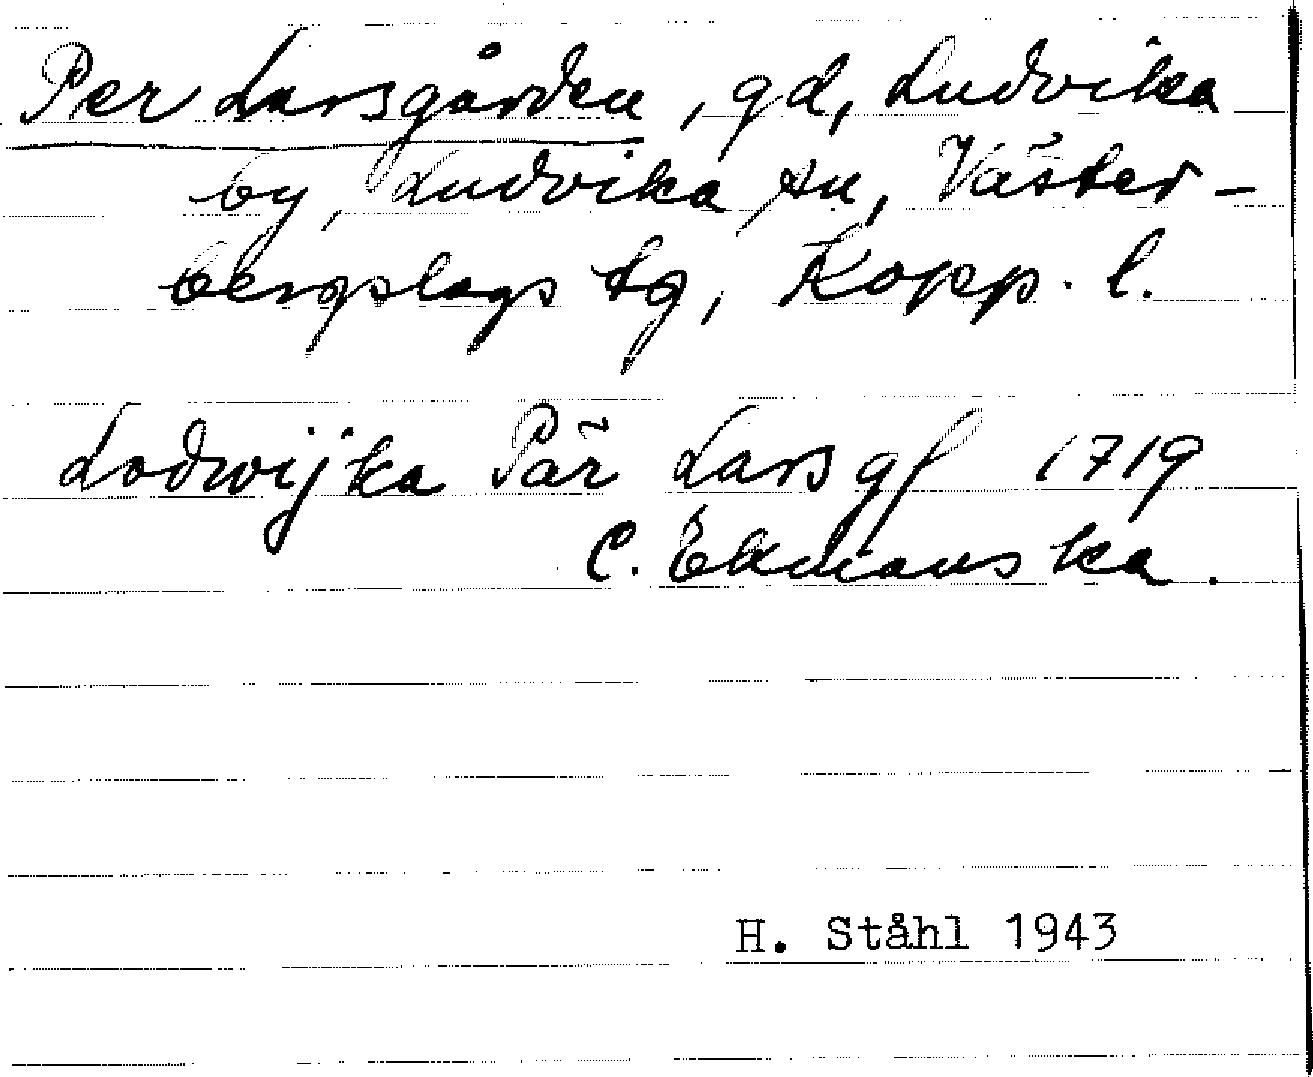 Per Larsgården, gd, Ludvika
by, Ludvika sn, Väster-
bergslags tg, Kopp. l.
Lodwijka Pär Lars gf 1719
C. Ekmanska.
H. Ståhl 1943